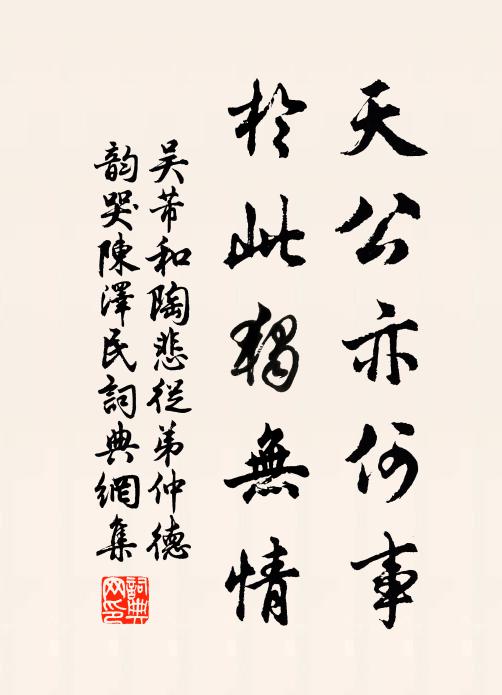 天公亦何事
於此獨無情
吴芾和陶悲從弟仲德
韵哭陳澤民詞典網集
詞典網印